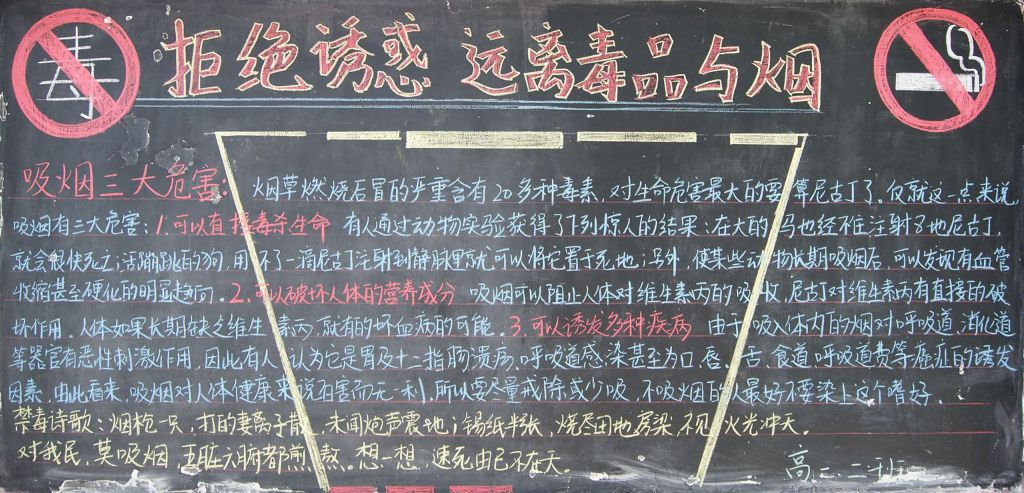 毒
拒绝诱惑 远离毒品与烟
吸烟三大危害: 烟草燃烧后冒的严重含有20多种毒素,对生命危害最大的要算尼古丁了。仅就这一点来说
吸烟有三大危害:1.可以直接毒杀生命 有人通过动物实验获得了下列惊人的结果:在大的 马也经不住注射8地尼古丁,
就会很快死亡;活蹦跳的狗,用不了一滴尼古丁注射到静脉里就可以将它置于死地;另外,使某些动物长期吸烟后,可以发现有血管
收缩甚至硬化的明显趋向。2.可以破坏人体的营养成分 吸烟可以阻止人体对维生素丙的吸收,尼古丁对维生素丙有直接的破
坏作用。人体如果长期缺乏维生素丙,就有的坏血病的可能。3.可以诱发多种疾病 由于吸入体内的烟对呼吸道,消化道
等器官有恶性刺激作用,因此有人认为它是胃及十二指肠溃疡、呼吸道感染甚至为口唇、舌、食道、呼吸道贲等癌症的诱发
因素。由此看来,吸烟对人体健康来说百害而无一利,所以要尽量戒除或少吸,不吸烟的人最好不要染上这个嗜好。
禁毒诗歌:烟枪一只,打的妻离子散,未闻炮声震地;锡纸半张,烧尽田地房梁,不见火光冲天。
对我民,莫吸烟,五脏六肺都煎熬。想一想,速死由己不在天。
高二二班